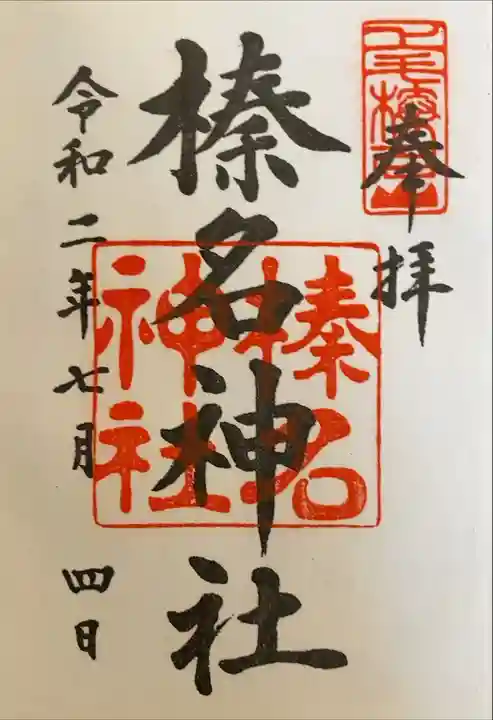 奉拝
上毛榛名山
榛名神社
榛名
神社
令和二年七月四日